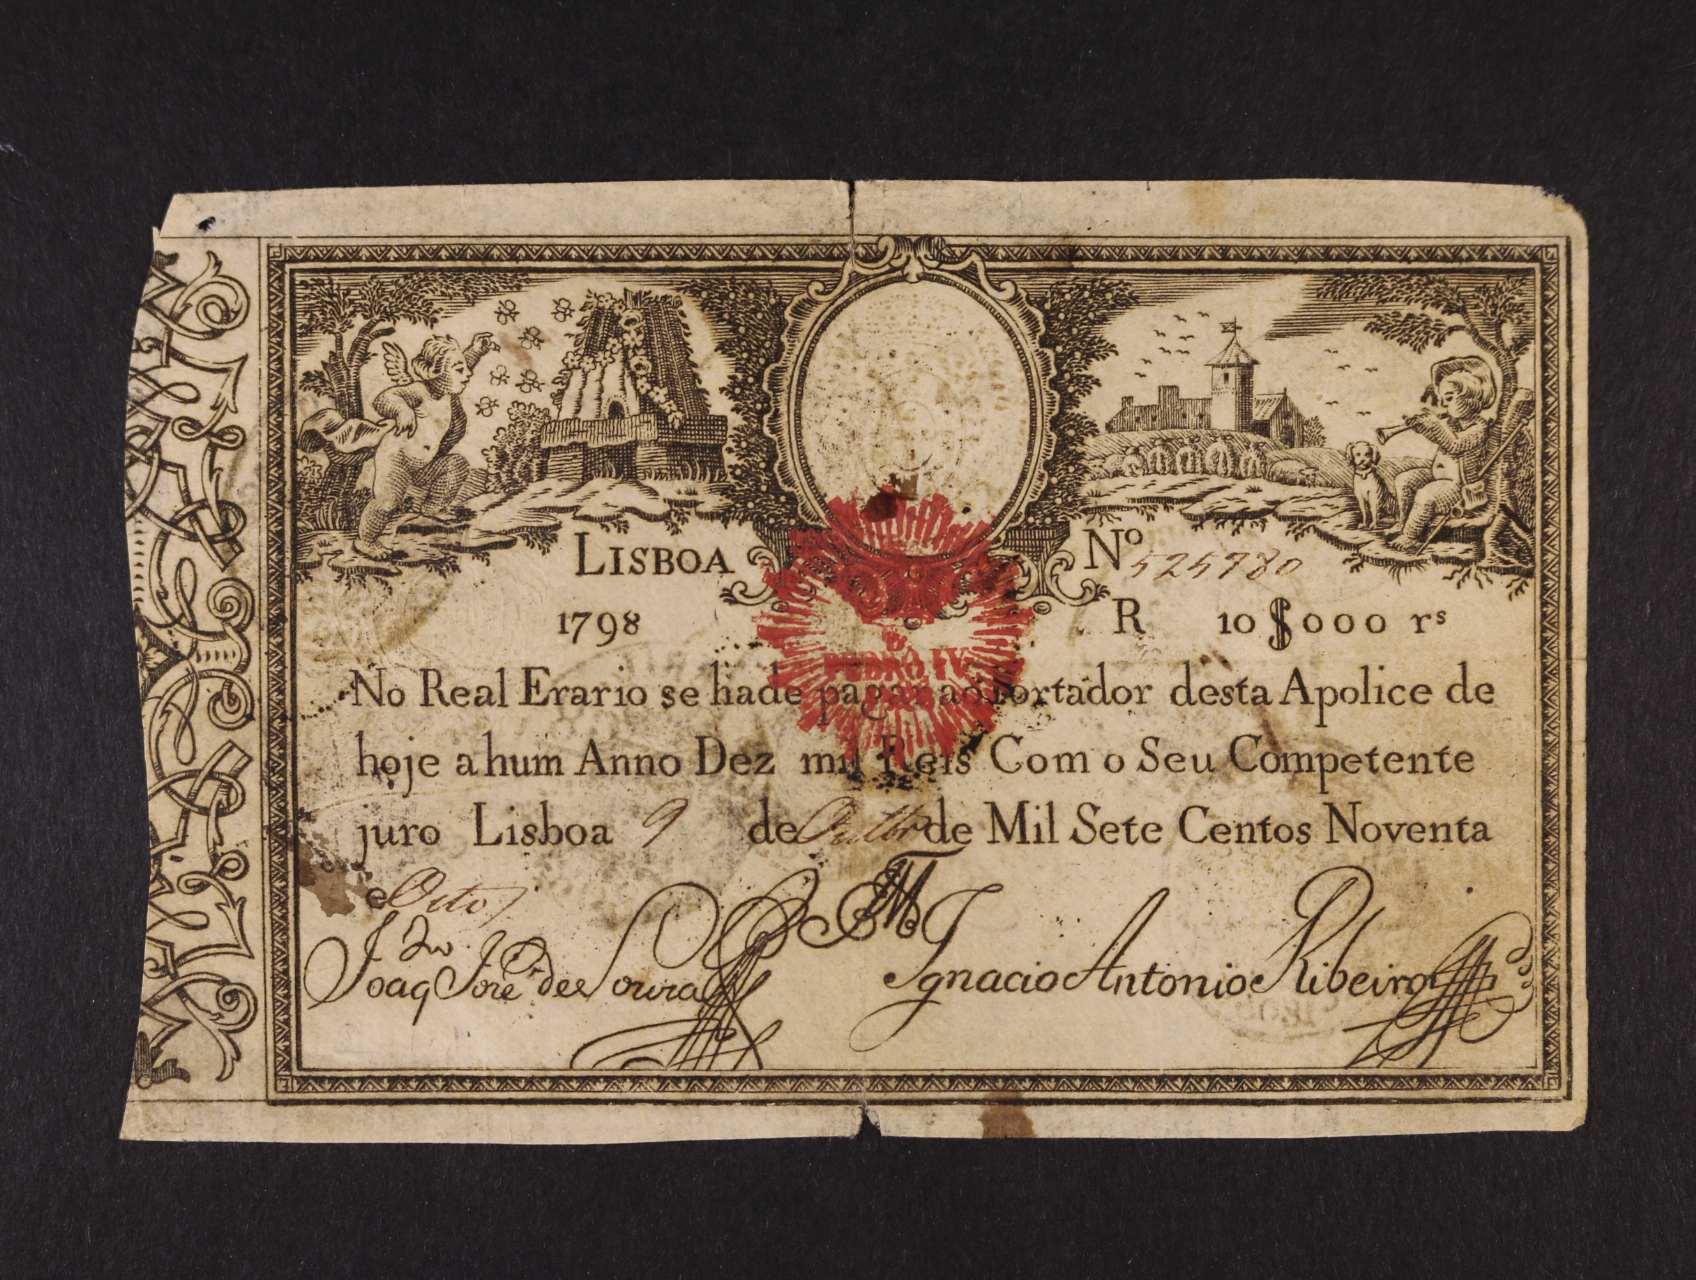 LISBOA
Nº 525780
1798
R 10$000 rs
D
PEDRO IV
No Real Erario se hade pagar ao Portador desta Apolice de
hoje a hum Anno Dez mil Reis Com o Seu Competente
juro Lisboa 9 de Outbr de Mil Sete Centos Noventa
e Oito
Joaq Jose de Souza
Ignacio Antonio Ribeiro